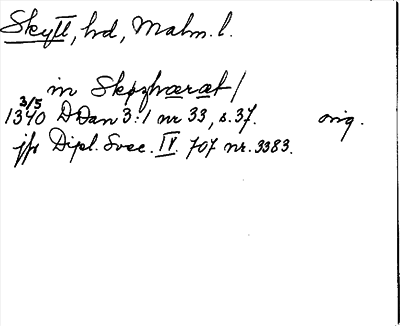 Skytt, hd, Malm. l.
in Skøzhæræt/
3/5
1340 DDan 3:1 nr 33, s.37. orig.
jfr Dipl. Svec. IV. 707 nr. 3383.